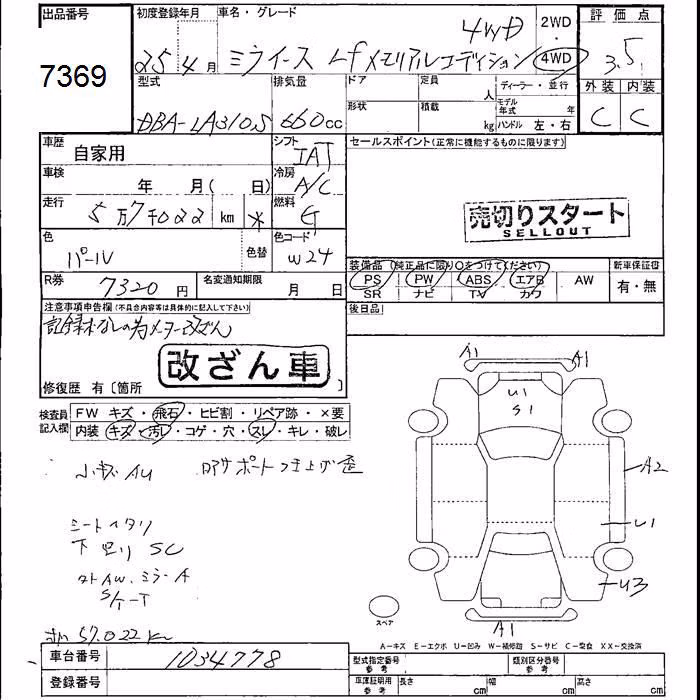 出品番号
7369
初度登録年月
25 4 月
車名・グレード
4WD
ミライース Lfメモリアルエディション
2WD
・
4WD
評価点
3.5
外装 内装
C C
型式
DBA-LA310S
排気量
660cc
ドア
形状
定員
人
積載
kg
ディーラー・並行
モデル年式 年
ハンドル 左・右
車歴
自家用
シフト
IAT
車検
年 月( 日)
冷房
A/C
走行
5万7千022 km *
燃料
G
色
パール
色替
色コード
W24
R券
7320 円
名変通知期限
月 日
セールスポイント(正常に機能するものに限ります)
売切りスタート
SELLOUT
装備品(純正品に限り○をつけてください)
PS PW ABS エアB AW
SR ナビ TV カワ
新車保証書
有・無
後日品
注意事項申告欄(不具合内容等は具体的に記入して下さい)
記録なしの為メーター改ざん
改ざん車
修復歴 有〔箇所 〕
検査員記入欄
FW キズ・飛石・ヒビ割・リペア跡・×要
内装 キズ・汚レ・コゲ・穴・スレ・キレ・破レ
小キズ AU
シートヘタリ
下回り SC
ミラーA
57,022 km
A1
A1
U1
S1
A2
U1
U3
A1
スペア
A-キズ E-エクボ U-凹み W-補修跡 S-サビ C-腐食 XX-交換済
車台番号
1034778
登録番号
型式指定番号
参考
類別区分番号
参考
車庫証明用
参考
長さ cm
幅 cm
高さ cm